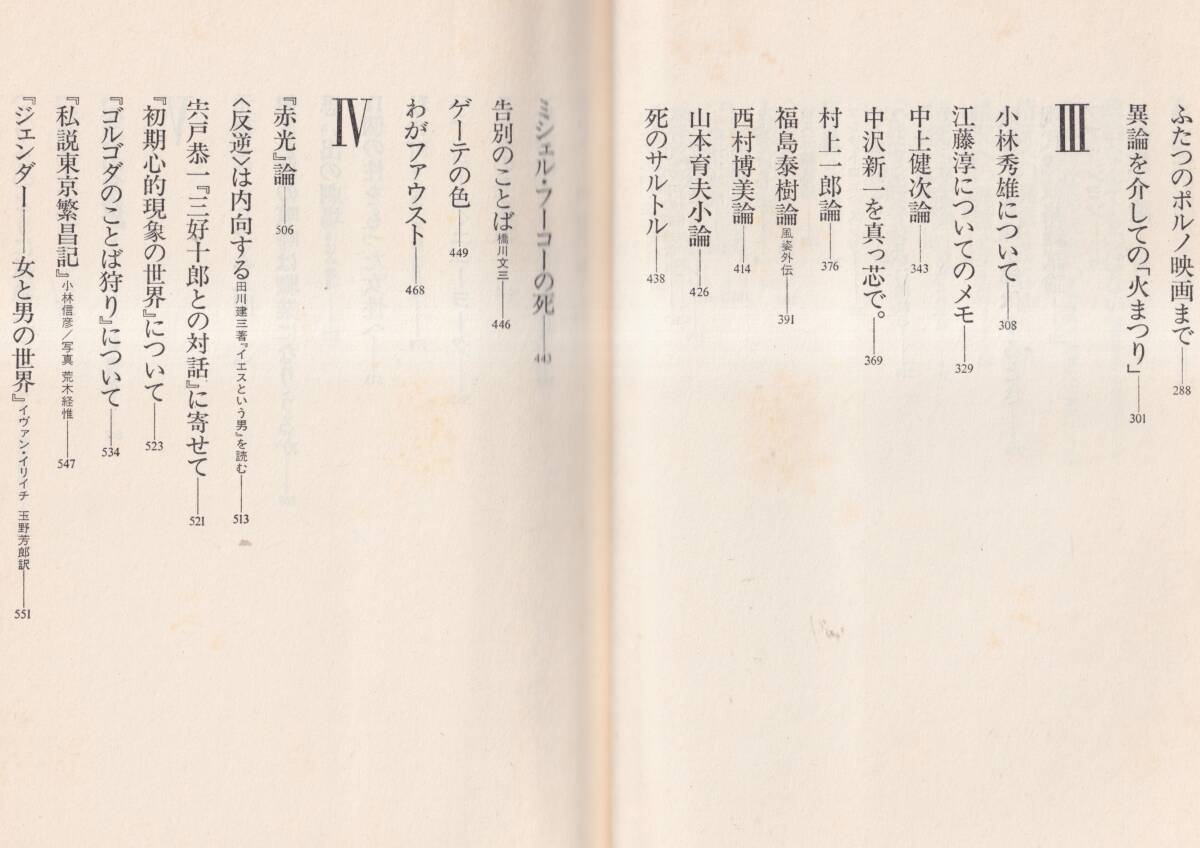 ふたつのポルノ映画まで——288
異論を介しての「火まつり」——301
Ⅲ
小林秀雄について——308
江藤淳についてのメモ——329
中上健次論——343
中沢新一を真っ芯で。——369
村上一郎論——376
福島泰樹論 風姿外伝——391
西村博美論——414
山本育夫小論——426
死のサルトル——438
ミシェル・フーコーの死——443
告別のことば 橋川文三——446
ゲーテの色——449
わがファウスト——468
Ⅳ
『赤光』論——506
〈反逆〉は内向する 田川建三著『イエスという男』を読む——513
宍戸恭一『三好十郎との対話』に寄せて——521
『初期心的現象の世界』について——523
『ゴルゴダのことば狩り』について——534
『私説東京繁昌記』 小林信彦／写真 荒木経惟——547
『ジェンダー——女と男の世界』 イヴァン・イリイチ 玉野芳郎訳——551